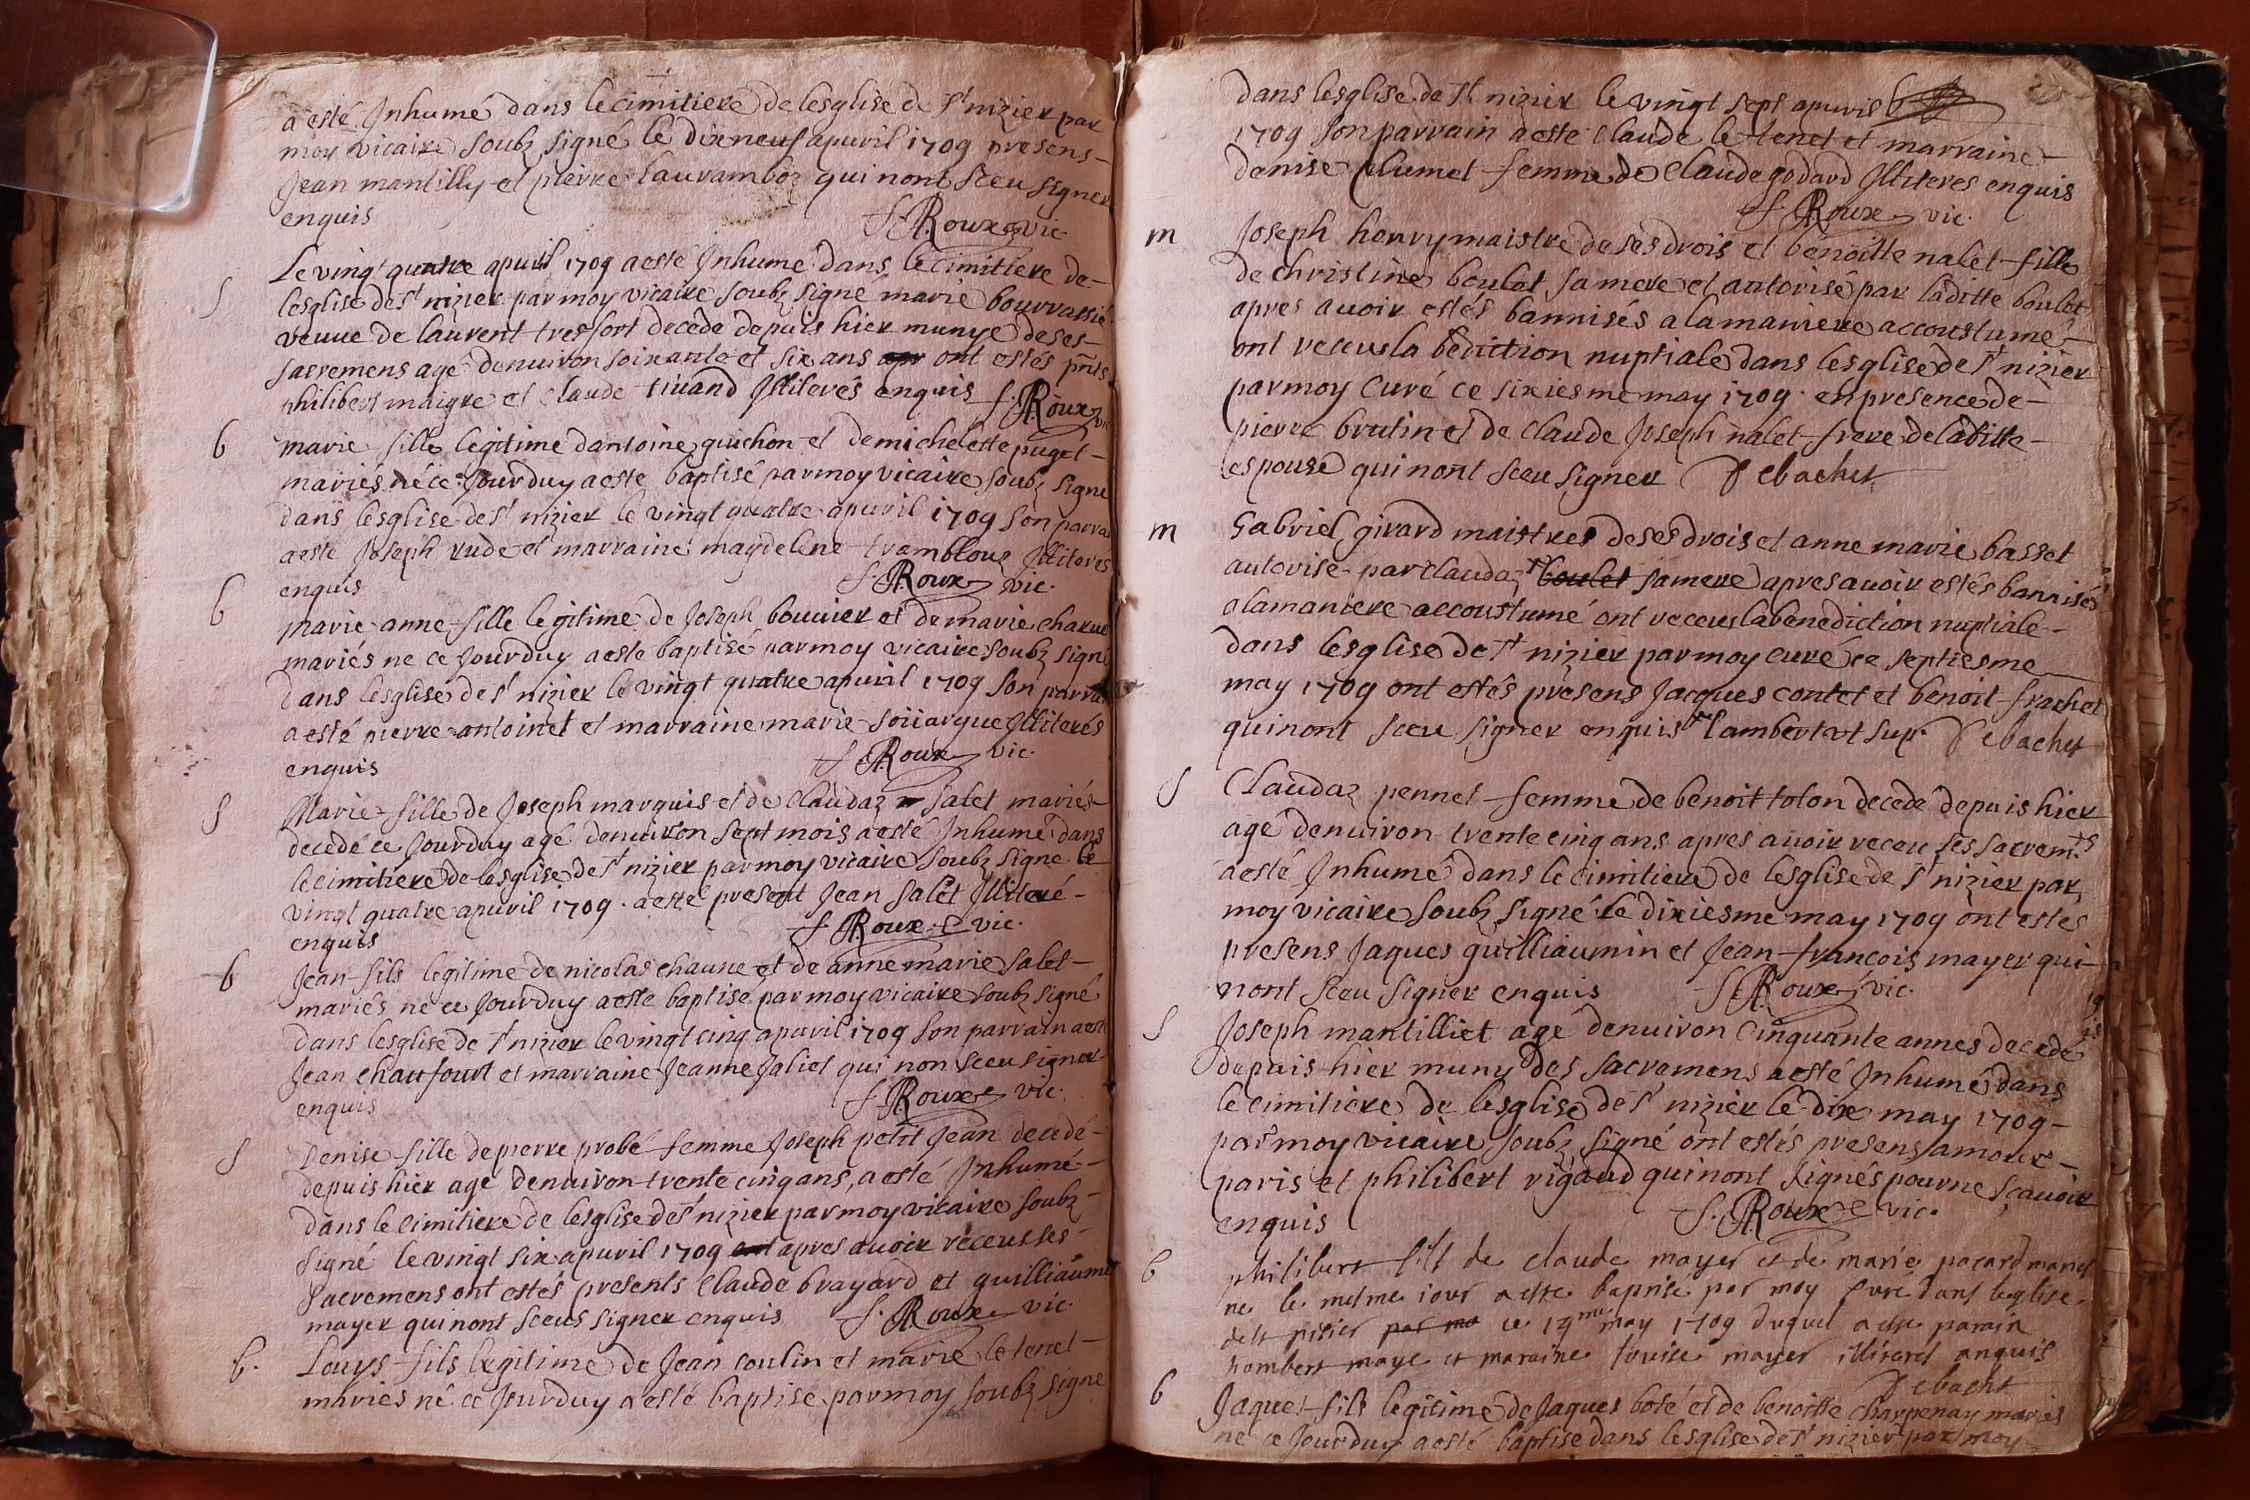 a esté Inhumé dans le cimitiere de lesglise de st nizier par
moy vicaire soubz signé le dixneuf apuril 1709 presens
Jean mantilly et pierre lauramboz qui nont sceu signer
enquis S. Roux vic
Le vingt quatre apuril 1709 a esté Inhumé dans le cimitiere de
S lesglise de st nizier par moy vicaire soubz signé marie bourrassié
veuve de laurent tresfort decede depuis hier munye de ses
sacremens agé denuiron soixante et six ans apr ont estés pñts
philibert maigre et claude tiuand Illiterés enquis S. Roux vic
b marie fille legitime dantoine guichon et de michelette puget
mariés né ce Jourduy a esté baptisé par moy vicaire soubz signé
dans lesglise de st nizier le vingt quatre apuril 1709 son parrai
a esté Joseph rude et marraine maydelene tramblouz Illiterés
enquis S. Roux vic.
b marie anne fille legitime de Joseph bouuier et de marie charue
mariés ne ce Jourduy a esté baptisé par moy vicaire soubz signé
dans lesglise de st nizier le vingt quatre apuril 1709 son parrai
a esté pierre antoinet et marraine marie soiiargue Illiterés
enquis S. Roux vic.
S Marie fille de Joseph marquis et de claudaz salet mariés
decedé ce Jourduy agé denuiron sept mois a esté Inhumé dans
le cimitiere de lesglise de st nizier par moy vicaire soubz signé le
vingt quatre apuril 1709. a esté present Jean salet Illiteré
enquis S. Roux vic.
b Jean fils legitime de nicolas chaune et de anne marie salet
mariés né ce Jourduy a esté baptisé par moy vicaire soubz signé
dans lesglise de st nizier le vingt cinq apuril 1709 son parrain a esté
Jean chaufourt et marraine Jeanne Jaliet qui non sceu signer
enquis S. Roux vic.
S Denise fille de pierre probé femme Joseph petit Jean decedé
depuis hier agé denuiron trente cinq ans, a esté Inhumé
dans le cimitiere de lesglise de st nizier par moy vicaire soubz
signé le vingt six apuril 1709 ont apres auoir receus ses
sacremens ont estés presents claude brayard et guilliaume
mayer qui nont sceus signer enquis S. Roux vic.
b. Louys fils legitime de Jean coulin et marie le tenet
mariés né ce Jourduy a esté baptise par moy soubz signé
dans lesglise de st nizier le vingt sept apuril
1709 son parrain a esté claude le tenet et marraine
denise plumet femme de claude godard Illiteres enquis
S. Roux vic.
m Joseph henry maistre de ses drois et benoitte nalet fille
de christine boulet sa mere et autorisé par laditte boulet
apres auoir estés bannisés a la maniere accoustumé
ont receus la benedition nuptiale dans lesglise de st nizier
par moy curé ce sixiesme may 1709. en presence de
pierre brutin et de claude Joseph nalet frere de laditte
espouse qui nont sceu signer Debachet
m Gabriel girard maistres de ses drois et anne marie basset
autorisé par claudaz boulet sa mere apres auoir estés bannisés
a la maniere accoustumé ont receus la benediction nuptiale
dans lesglise de st nizier par moy curé ce septiesme
may 1709 ont estés presens Jacques contet et benoit frachet
qui nont sceu signer enquis lambert sup. Debachet
S Claudaz pennet femme de benoit tolon decedé depuis hier
agé denuiron trente cinq ans apres auoir receu ses sacrem.ts
a esté Inhumé dans le cimitiere de lesglise de st nizier par
moy vicaire soubz signé le dixiesme may 1709 ont estés
presens Jaques guilliaumin et Jean francois mayer qui
nont sceu signer enquis S. Roux vic.
S Joseph mantilliet agé denuiron cinquante annes decedé
depuis hier muny des sacremens a esté Inhumé dans
le cimitiere de lesglise de st nizier le dix may 1709
par moy vicaire soubz signé ont estés presens amour
paris et philibert rigaud qui nont signés pour ne sçauoir
enquis S. Roux vic.
b philibert fils de claude mayer et de marie pacard mariés
ne le mesme iour a este baptisé par moy curé dans leglise
de st nisier par mo ce 19me may 1709 duquel a este parain
hombert maye et maraine louise mayer illiterés anquis
Debachet
b Jaques fils legitime de Jaques boté et de benoitte charpenay mariés
né ce Jourduy a esté baptise dans lesglise de st nizier par moy